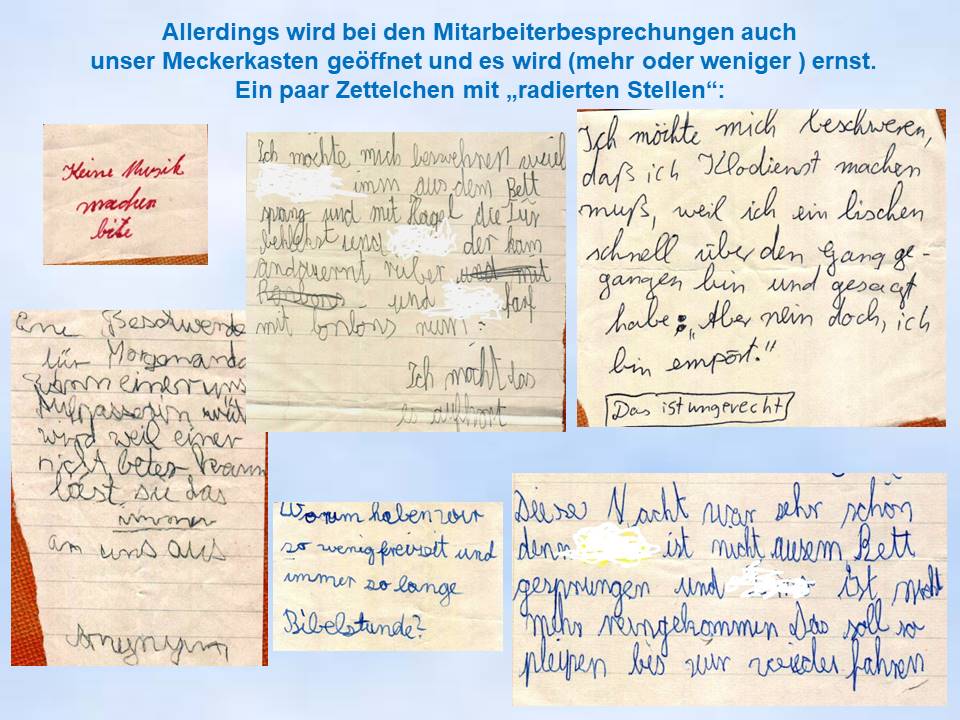 Allerdings wird bei den Mitarbeiterbesprechungen auch
unser Meckerkasten geöffnet und es wird (mehr oder weniger ) ernst.
Ein paar Zettelchen mit „radierten Stellen“:
Keine Musik
machen
bite
Ich möchte mich beswehren weiel
imm aus dem Bett
sprang und mit Hagel die Tür
und der kam
rüber
und
mit bonbons rum.
Ich möcht das
es aufhört
Ich möchte mich beschweren,
daß ich Klodienst machen
muß, weil ich ein bischen
schnell über den Gang ge-
gangen bin und gesagt
habe: „Aber nein doch, ich
bin empört.“
Das ist ungerecht
Eine Beschwerde
für Morgenanda
wenn einer uns
Aufpasserin
wird weil einer
nicht beten kann
läst sie das
immer
am uns aus
Anynym
Worum haben wir
so wenig freizeit und
immer so lange
Bibelstunde?
Diese Nacht war sehr schön
denn ist nicht ausem Bett
gesprungen und ist nicht
mehr reingekommen Das soll so
pleipen bis wir wieder fahren